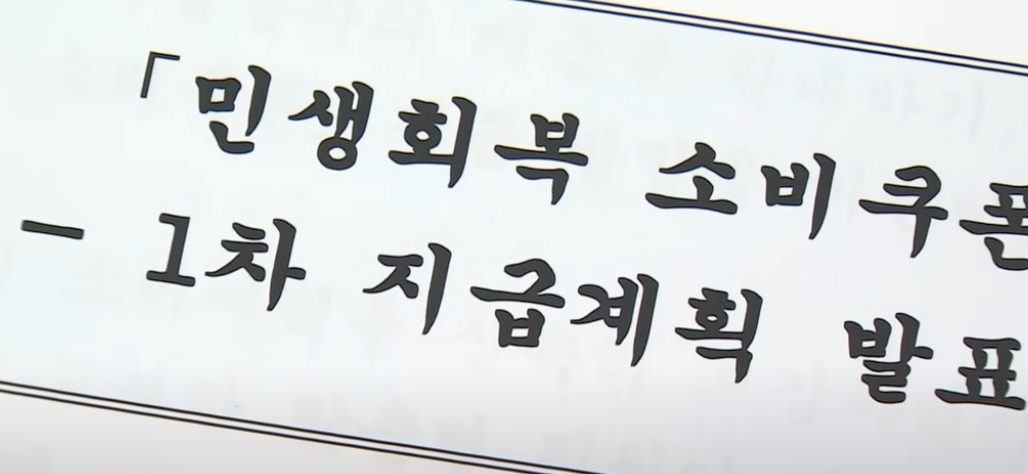 「민생회복 소비쿠폰
- 1차 지급계획 발표